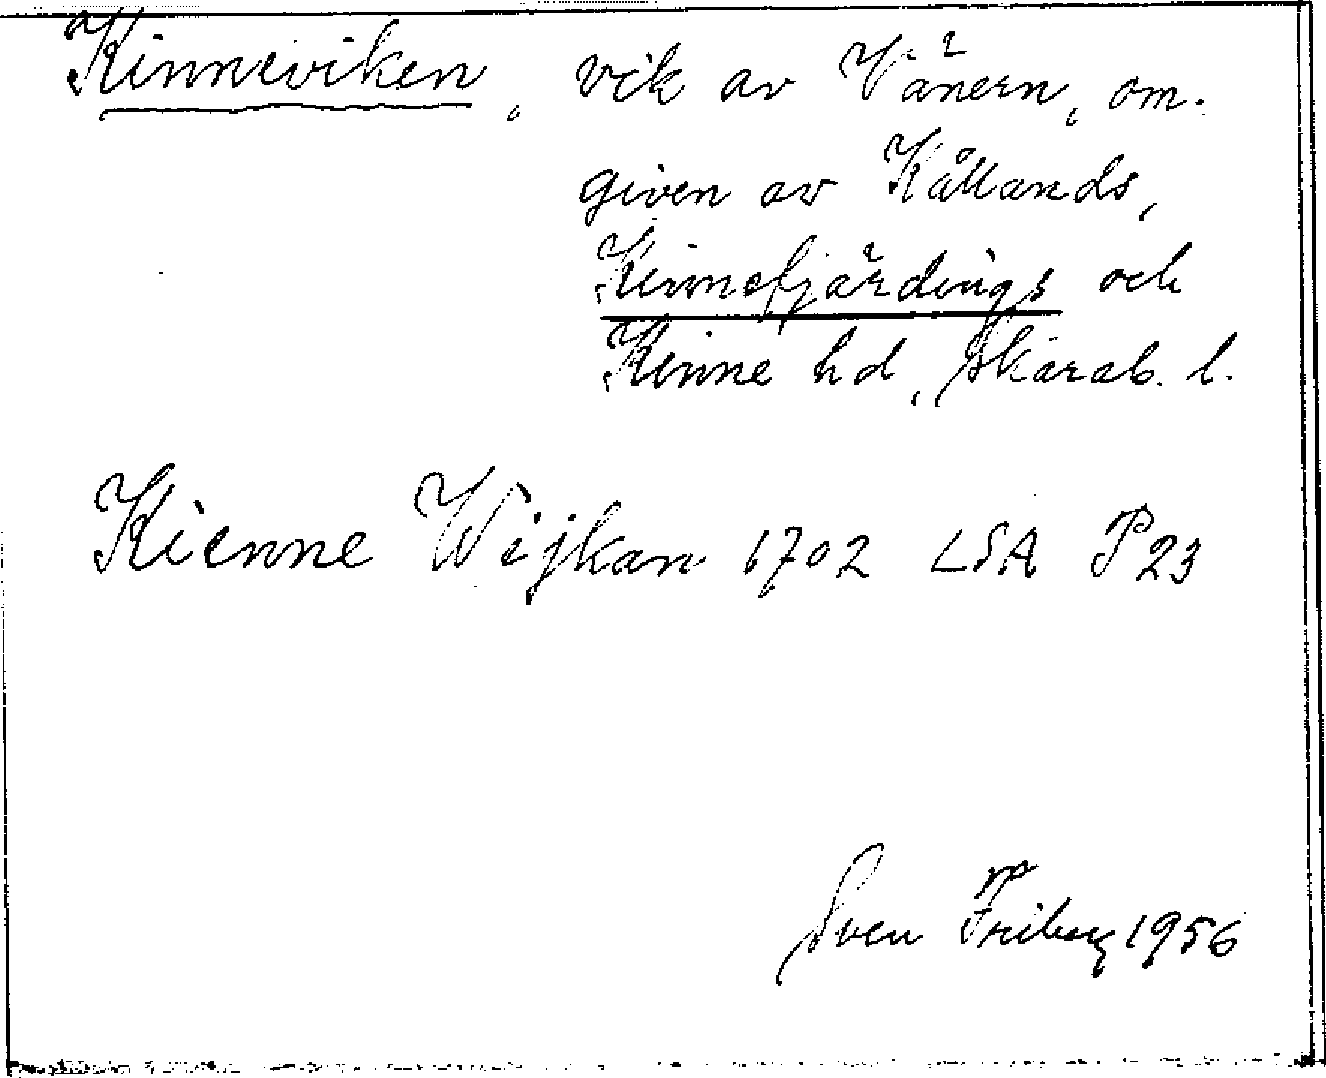 Kinneviken, vik av Vänern, om-
given av Kållands,
Kinnefjärdings och
Kinne hd, Skarab. l.
Kienne Wijkan 1702 LSA P23
Sven Friberg 1956